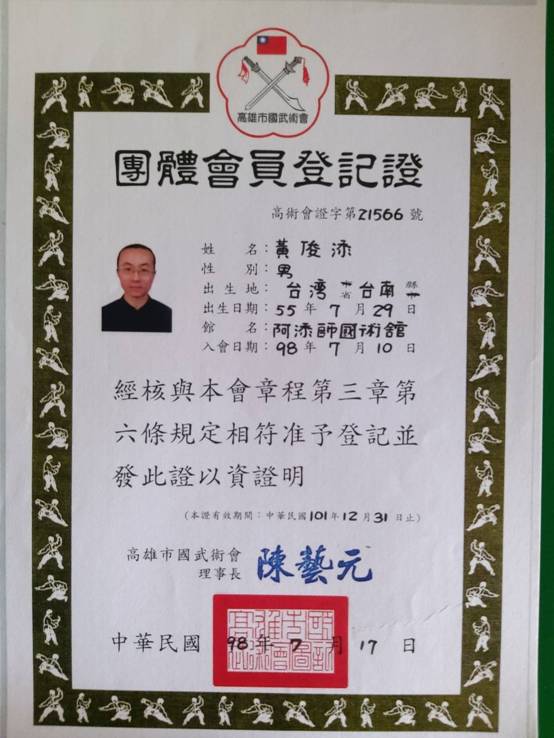 高雄市國武術會
團體會員登記證
高術會證字第21566 號
姓 名：黃俊添
性 別：男
出 生 地： 台湾 市省 台南 縣市
出生日期：55 年 7 月 29 日
館 名：阿添師國術舘
入會日期：98 年 7 月 10 日
經核與本會章程第三章第
六條規定相符准予登記並
發此證以資證明
(本證有效期間：中華民國101年12月31日止)
高雄市國武術會
理事長 陳藝元
中華民國 98 年 7 月 17 日